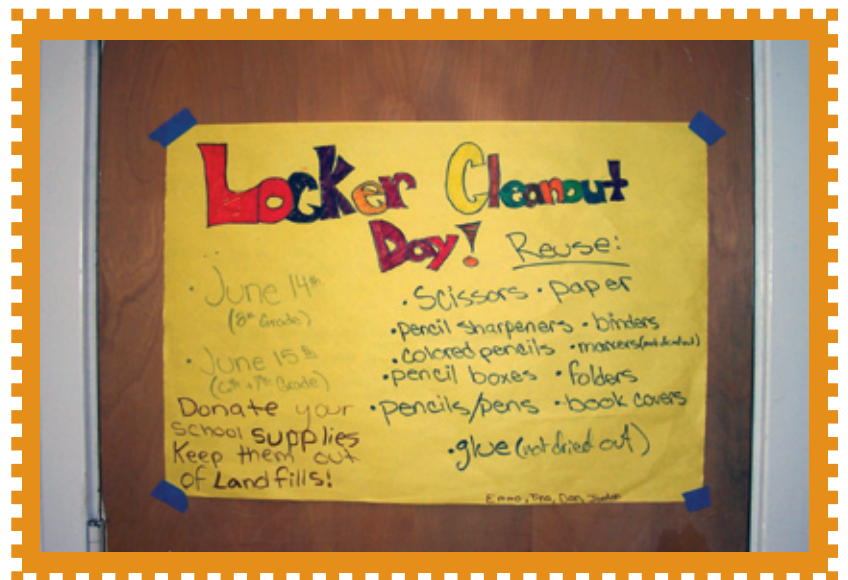 Locker Cleanout
Day!
• June 14th
(8th Grade)
• June 15th
(6th + 7th Grade)
Donate your
school supplies
Keep them out
of Landfills!
Reuse:
• Scissors • paper
• pencil sharpeners • binders
• colored pencils • markers (not dried out)
• pencil boxes • folders
• pencils/pens • book covers
• glue (not dried out)
Emma, Tina, Dan,